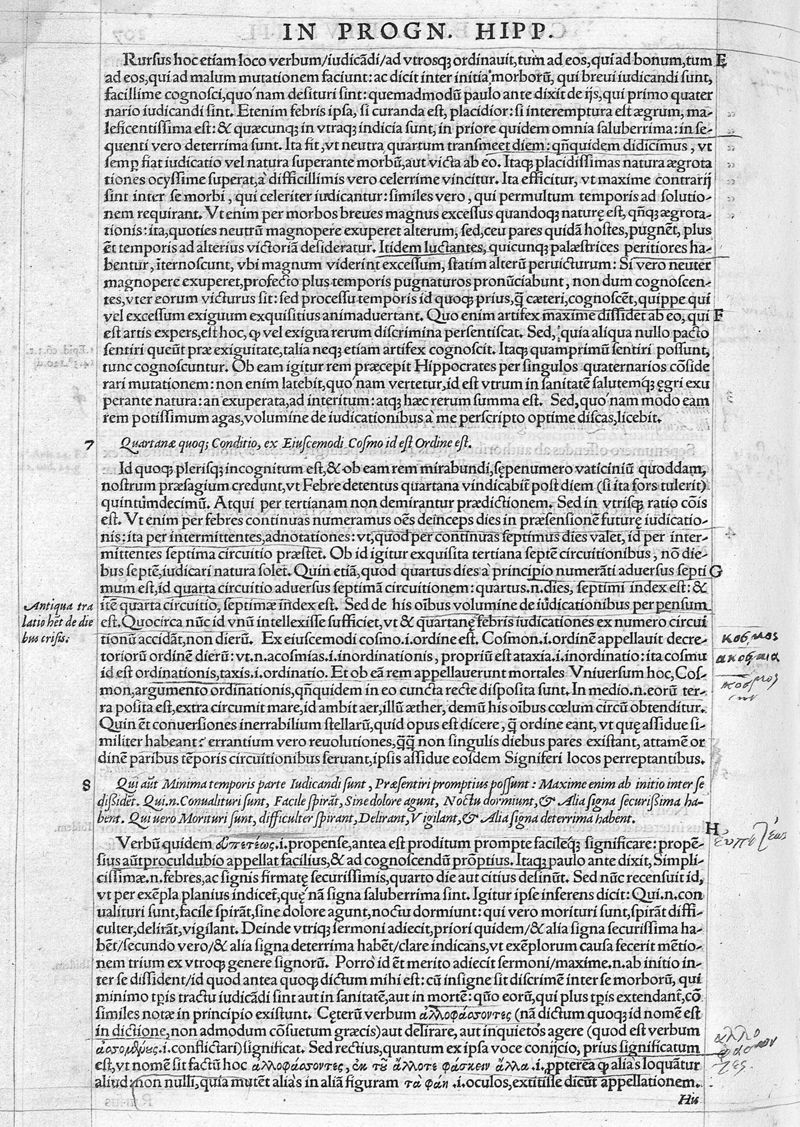 IN PROGN. HIPP.
Rursus hoc etiam loco verbum/iudicãdi/ad vtrosq; ordinauit,tum ad eos,qui ad bonum,tum E
ad eos,qui ad malum mutationem faciunt: ac dicit inter initia morborũ, qui breui iudicandi sunt,
facillime cognosci,quo nam desituri sint: quemadmodũ paulo ante dixit de ijs,qui primo quater
nario iudicandi sint. Etenim febris ipsa, si curanda est, placidior: si interemptura est ægrum, ma-
leficentissima est: & quæcunq; in vtraq; indicia sunt, in priore quidem omnia saluberrima: in se-
quenti vero deterrima sunt. Ita fit, vt neutra quartum transmeet diem: qñquidem didicimus, vt
semp fiat iudicatio vel natura superante morbũ,aut victa ab eo. Itaq; placidissimas natura ægrota
tiones ocyssime superat,à difficillimis vero celerrime vincitur. Ita efficitur, vt maxime contrarij
sint inter se morbi, qui celeriter iudicantur: similes vero, qui permultum temporis ad solutio-
nem requirant. Vt enim per morbos breues magnus excessus quandoq; naturę est, qñq; ægrota-
tionis: ita,quoties neutrũ magnopere exuperet alterum, sed,ceu pares quidã hostes,pugnẽt, plus
ẽt temporis ad alterius victoriã desideratur. Itidem luctantes, quicunq; palæstrices peritiores ha-
bentur, ĩternoscunt, vbi magnum viderint excessum, statim alterũ peruicturum: Si vero neuter
magnopere exuperet,profecto plus temporis pugnaturos pronũciabunt, non dum cognoscen-
tes,vter eorum victurus sit: sed processu temporis id quoq; prius,q̃ cæteri,cognoscẽt,quippe qui
vel excessum exiguum exquisitius animaduertant. Quo enim artifex maxime dissidet ab eo, qui F
est artis expers,est hoc, q̃ vel exigua rerum discrimina persentiscat. Sed, quia aliqua nullo pacto
sentiri queũt præ exiguitate,talia neq; etiam artifex cognoscit. Itaq; quamprimũ sentiri possunt,
tunc cognoscuntur. Ob eam igitur rem præcepit Hippocrates per singulos quaternarios cõside
rari mutationem: non enim latebit,quo nam vertetur,id est vtrum in sanitatẽ salutemq; ęgri exu
perante natura: an exuperata,ad interitum: atq; hæc rerum summa est. Sed,quo nam modo eam
rem potissimum agas,volumine de iudicationibus a me perscripto optime discas,licebit.
7 Quartanæ quoq; Conditio, ex Eiuscemodi Cosmo id est Ordine est.
Id quoq; plerisq; incognitum est,& ob eam rem mirabundi,sępenumero vaticiniũ quoddam,
nostrum præsagium credunt,vt Febre detentus quartana vindicabit̃ post diem (si ita fors tulerit)
quintumdecimũ. Atqui per tertianam non demirantur prædictionem. Sed in vtrisq; ratio cõis
est. Vt enim per febres continuas numeramus oẽs deinceps dies in præsensionẽ futurę iudicatio-
nis: ita per intermittentes,adnotationes: vt,quod per continuas septimus dies valet, id per inter-
mittentes septima circuitio præstet. Ob id igitur exquisita tertiana septẽ circuitionibus, nõ die-
bus septẽ,iudicari natura solet. Quin etiã,quod quartus dies a principio numerãti aduersus septi G
mum est,id quarta circuitio aduersus septimã circuitionem: quartus.n.dies, septimi index est: &
itẽ quarta circuitio, septimæ index est. Sed de his oĩbus volumine de iudicationibus perpensum
est.Quocirca nũc id vnũ intellexisse sufficiet, vt & quartanę febris iudicationes ex numero circui
tionũ accidãt,non dierũ. Ex eiuscemodi cosmo.i.ordine est. Cosmon.i.ordinẽ appellauit decre-
toriorũ ordinẽ dierũ: vt.n.acosmias.i.inordinationis, propriũ est ataxia.i.inordinatio: ita cosmu
id est ordinationis,taxis.i.ordinatio. Et ob eã rem appellauerunt mortales Vniuersum hoc, Cos-
mon,argumento ordinationis,qñquidem in eo cuncta recte disposita sunt. In medio.n.eorũ ter-
ra posita est,extra circumit mare,id ambit aer,illũ æther,demũ his oĩbus cœlum circũ obtenditur.
Quin ẽt conuersiones inerrabilium stellarũ,quid opus est dicere, q̃ ordine eant, vt quę assidue si-
militer habeant: errantium vero reuolutiones,q̃q̃ non singulis diebus pares existant, attamẽ or
dinẽ paribus tẽporis circuitionibus seruant,ipsis assidue eosdem Signiferi locos perreptantibus.
Antiqua tra
latio hẽt de die
bus crisis.
κοσμος
ακοσμια
κοσμον
8 Qui aũt Minima temporis parte Iudicandi sunt, Præsentiri promptius possunt: Maxime enim ab initio inter se
dissidẽt. Qui.n.Conualituri sunt, Facile spirãt, Sine dolore agunt, Noctu dormiunt,& Alia signa securissima ha-
bent. Qui uero Morituri sunt, difficulter spirant, Delirant, Vigilant,& Alia signa deterrima habent.
H
Verbũ quidem εὐπετέως.i.propense,antea est proditum prompte facileq; significare: propẽ-
sius aũt proculdubio appellat facilius,& ad cognoscendũ prõptius. Itaq; paulo ante dixit, Simpli-
cissimæ.n.febres,ac signis firmatę securissimis,quarto die aut citius desinũt. Sed nũc recensuit id,
vt per exẽpla planius indicet, quę nã signa saluberrima sint. Igitur ipse inferens dicit: Qui.n.con
ualituri sunt,facile spirãt,sine dolore agunt,noctu dormiunt: qui vero morituri sunt,spirãt diffi-
culter,delirãt,vigilant. Deinde vtriq; sermoni adiecit,priori quidem/& alia signa securissima ha-
bẽt/secundo vero/& alia signa deterrima habẽt/clare indicans,vt exẽplorum causa fecerit mẽtio-
nem trium ex vtroq; genere signorũ. Porro id ẽt merito adiecit sermoni/maxime.n.ab initio in-
ter se dissident/id quod antea quoq; dictum mihi est: cũ insigne sit discrimẽ inter se morborũ, qui
minimo tp̃is tractu iudicãdi sint aut in sanitatẽ,aut in mortẽ: qũo eorũ,qui plus tp̃is extendant̃,cõ
similes notæ in principio existunt. Cęterũ verbum ἀλλοφάσσοντες (nã dictum quoq; id nomẽ est
in dictione,non admodum cõsuetum græcis) aut delirare, aut inquietos agere (quod est verbum
.i.conflictari)significat. Sed rectius,quantum ex ipsa voce conijcio, prius significatum
est,vt nomẽ sit factũ hoc ἀλλοφάσσοντες, ἐκ τοῦ ἄλλοτε φάσκειν ἄλλα.i.ꝓpterea q̃ alias loquãtur
aliud: non nulli,quia mutẽt alias in aliã figuram τὰ φάη .i.oculos,extitisse dicũt appellationem.
His